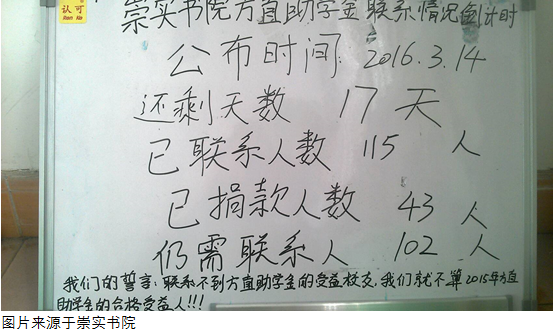 认可
Ren Ke
崇实书院方直助学金联系情况倒计时
公布时间: 2016.3.14
还剩天数 17 天
已联系人数 115 人
已捐款人数 43 人
仍需联系人 102 人
我们的誓言:联系不到方直助学金的受益校友,我们就不算2015年方直
助学金的合格受益人!!!
图片来源于崇实书院